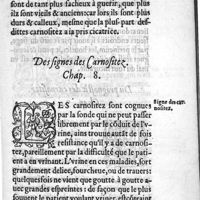 sont de tant plus fascheux à guerir, que plus
ils sont vieils & anciens: car lors ils sont plus
durs & calleux, mesme que la plus-part des-
dittes carnositez a ja pris cicatrice.
Des signes des Carnositez.
Chap. 8.
LES carnositez sont cognues
par la sonde qui ne peut passer
librement par le cōduit de l'v-
rine, ains trouue autāt de fois
resistance qu'il y a de carnosi-
tez, pareillement par la difficulté que le patient
a en vrinant. L'vrine en ces maladies, sort
grandement deliee, fourchue, ou de trauers:
quelquesfois ne vient que goute à goute a-
uec grandes espreintes: de façon que le plus
souuent le patient voulant vriner, est côtraint
Signe des car-
nositez.